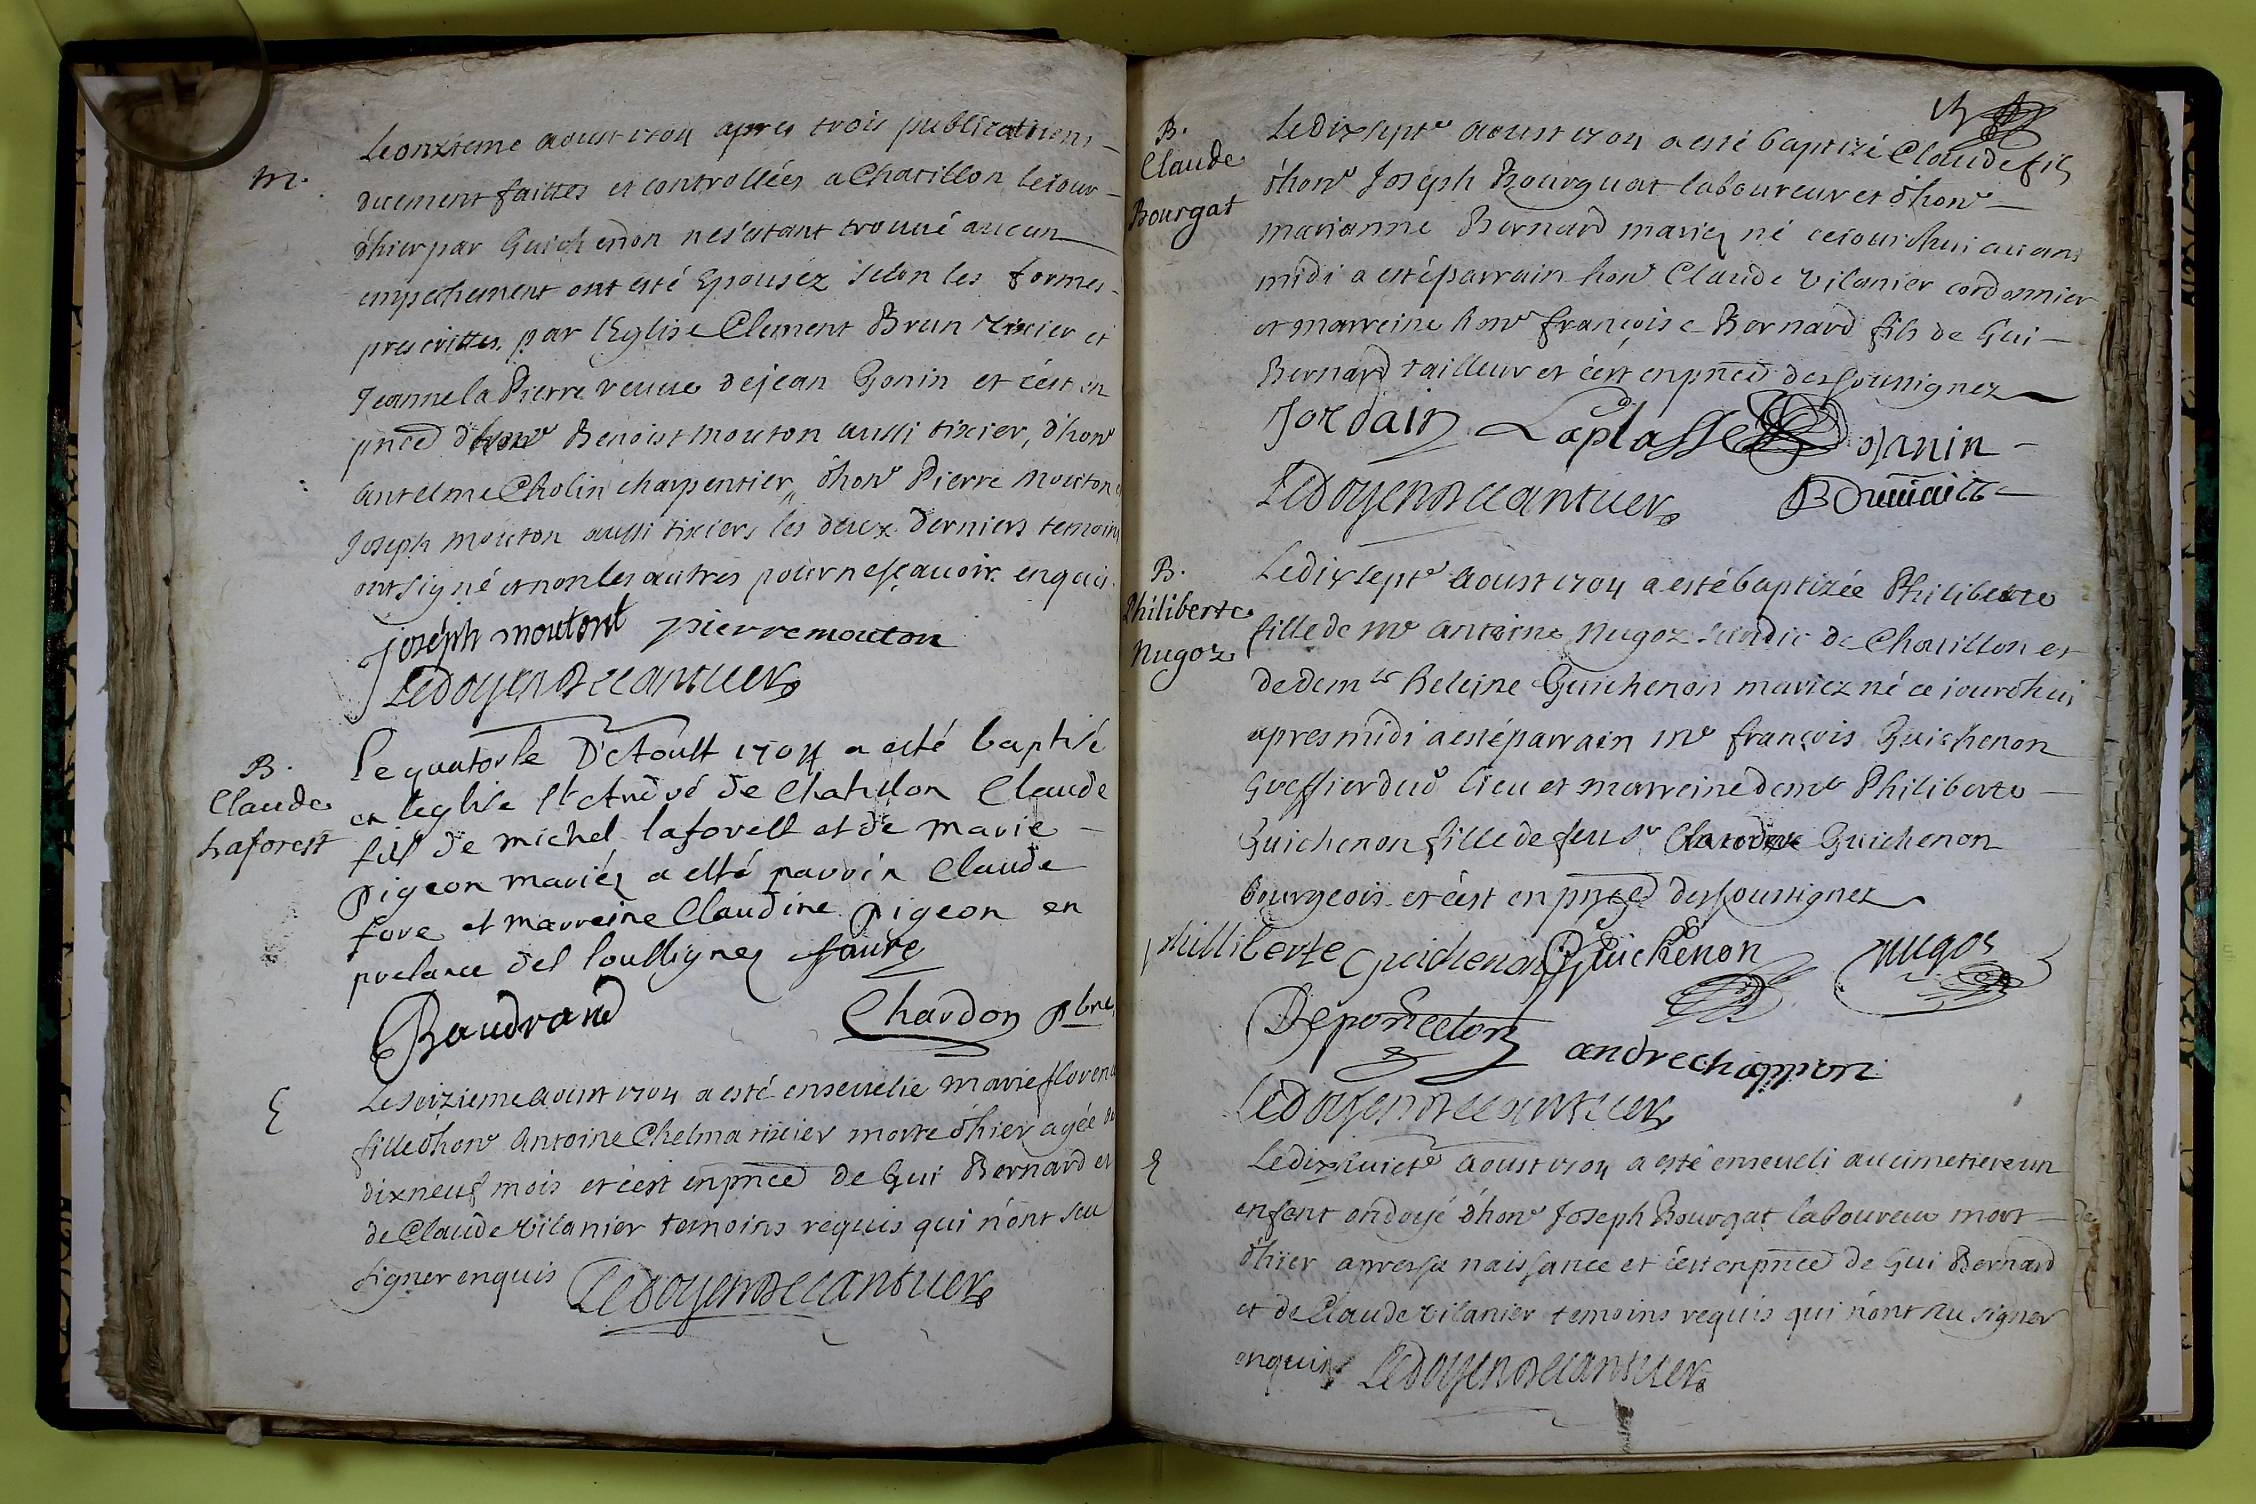 m.
Le onzieme aoust 1704 apres trois publications
duement faittes et controllées a Chatillon le iour
d'hier par Guichenon ne s'etant trouué aucun
empechement ont esté Epousez selon les formes
prescrittes par l'Eglise Clement Brun tixier et
Jeanne la Pierre veuue de jean Gonin et c'est en
pnce d'honᵉ Benoist mouton aussi tixier, d'honᵉ
Antelme Cholin charpentier, d'honᵉ Pierre mouton et
Joseph mouton aussi tixiers les deux derniers temoins
ont signé et non les autres pour ne sçauoir enquis.
joseph moutont pierre mouton
Ledoyen de Cantuer
B.
Claude
Laforest
Le quatorse D'Aoust 1704 a esté baptisé
en l'eglise st André de Chatillon Claude
fils de michel laforest et de marie
pigeon mariéz a esté parrain Claude
fore et marreine Claudine pigeon en
presance des soussignez faure
Baudrand Chardon pbre
E
Le seizieme aoust 1704 a esté enseuelie marie florence
fille d'honᵉ Antoine Chelma tixier morte d'hier agée de
dixneuf mois et c'est en pnce de Gui Bernard et
de Claude Vilanier temoins requis qui n'ont seu
signer enquis Ledoyen de Cantuer
B.
Claude
Bourgat
Le dix septᵉ aoust 1704 a esté baptizé Claude fils
d'honᵉ Joseph Bourguat laboureur et d'honᵉ
marianne Bernard mariez né ceiourd'hui auant
midi a esté parrain honᵉ Claude Vilanier cordonnier
et marreine honᵉ françoise Bernard fille de Gui
Bernard tailleur et c'est en pnce des soussignez
Jordain Laplasse Janin
Ledoyen de Cantuer
B.
Philiberte
Nugoz
Le dix septᵉ aoust 1704 a esté baptizée Philiberte
fille de mᵉ Antoine Nugoz scindic de Chatillon et
de demˡˡᵉ Heleine Guichenon mariez né ce iourd'hui
apres midi a esté parrain mᵉ françois Guichenon
Greffier dud lieu et marreine demˡᵉ Philiberte
Guichenon fille de feu sʳ Guichenon
bourgeois et c'est en pnce des soussignez
philliberte Guichenon Guichenon Nugos
Deponceton andre chappon
Ledoyen de Cantuer
E
Le dix huictᵉ aoust 1704 a esté enseueli au cimetiere un
enfant ondoyé d'honᵉ Joseph Bourgat laboureur mort
d'hier apres sa naissance et c'est en pnce de Gui Bernard
et de Claude Vilanier temoins requis qui n'ont su signer
enquis Ledoyen de Cantuer